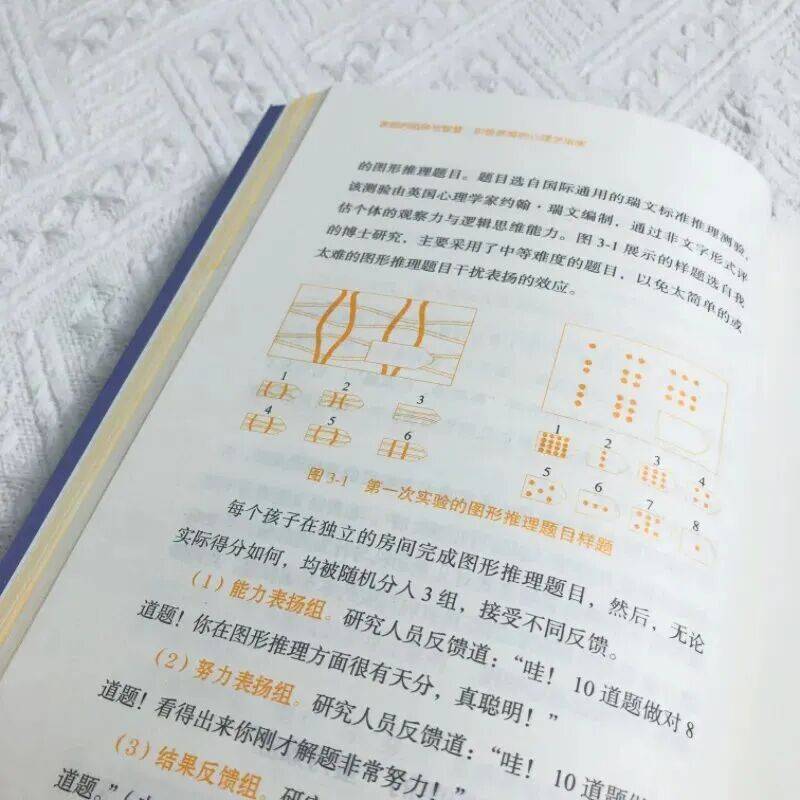 的图形推理题目。题目选自国际通用的瑞文标准推理测验,
该测验由英国心理学家约翰·瑞文编制,通过非文字形式评
估个体的观察力与逻辑思维能力。图 3-1 展示的样题选自我
的博士研究,主要采用了中等难度的题目,以免太简单的或
太难的图形推理题目干扰表扬的效应。
1 2 3
4 5 6
1 2 3 4
5 6 7 8
图 3-1 第一次实验的图形推理题目样题
每个孩子在独立的房间完成图形推理题目,然后,无论
实际得分如何,均被随机分入 3 组,接受不同反馈。
(1)能力表扬组。研究人员反馈道:“哇! 10 道题做对 8
道题!你在图形推理方面很有天分,真聪明!”
(2)努力表扬组。研究人员反馈道:“哇! 10 道题做
道题!看得出来你刚才解题非常努力!”
(3)结果反馈组。研
道题。”(